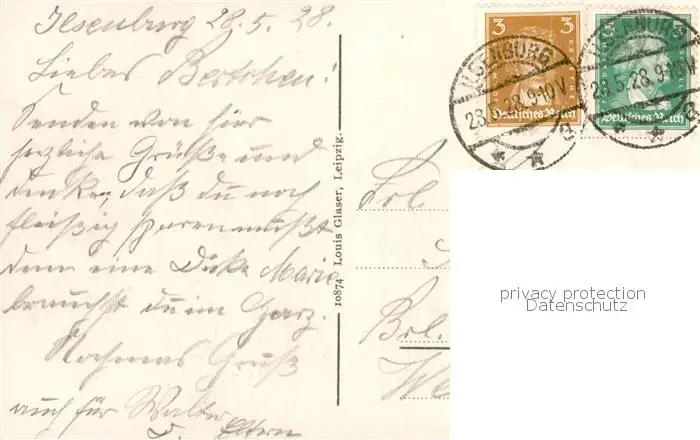 Ilsenburg 28.5.28.
Liebes Bertchen!
Senden von hier
herzliche Grüße und
denke, daß du noch
fleißig sparen mußt
denn eine Dicke Marie
brauchst du im Harz.
Nochmals Gruß
auch für Walter
d. Eltern
10874 Louis Glaser, Leipzig.
3 3
Deutsches Reich
5
Deutsches Reich
ILSENBURG
28.5.28.9-10V
ILSENBURG
28.5.28.9-10V
Frl.
Brl.
We
privacy protection
Datenschutz